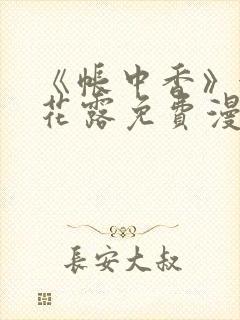 《帐中香》
花露免費漫
長安大叔